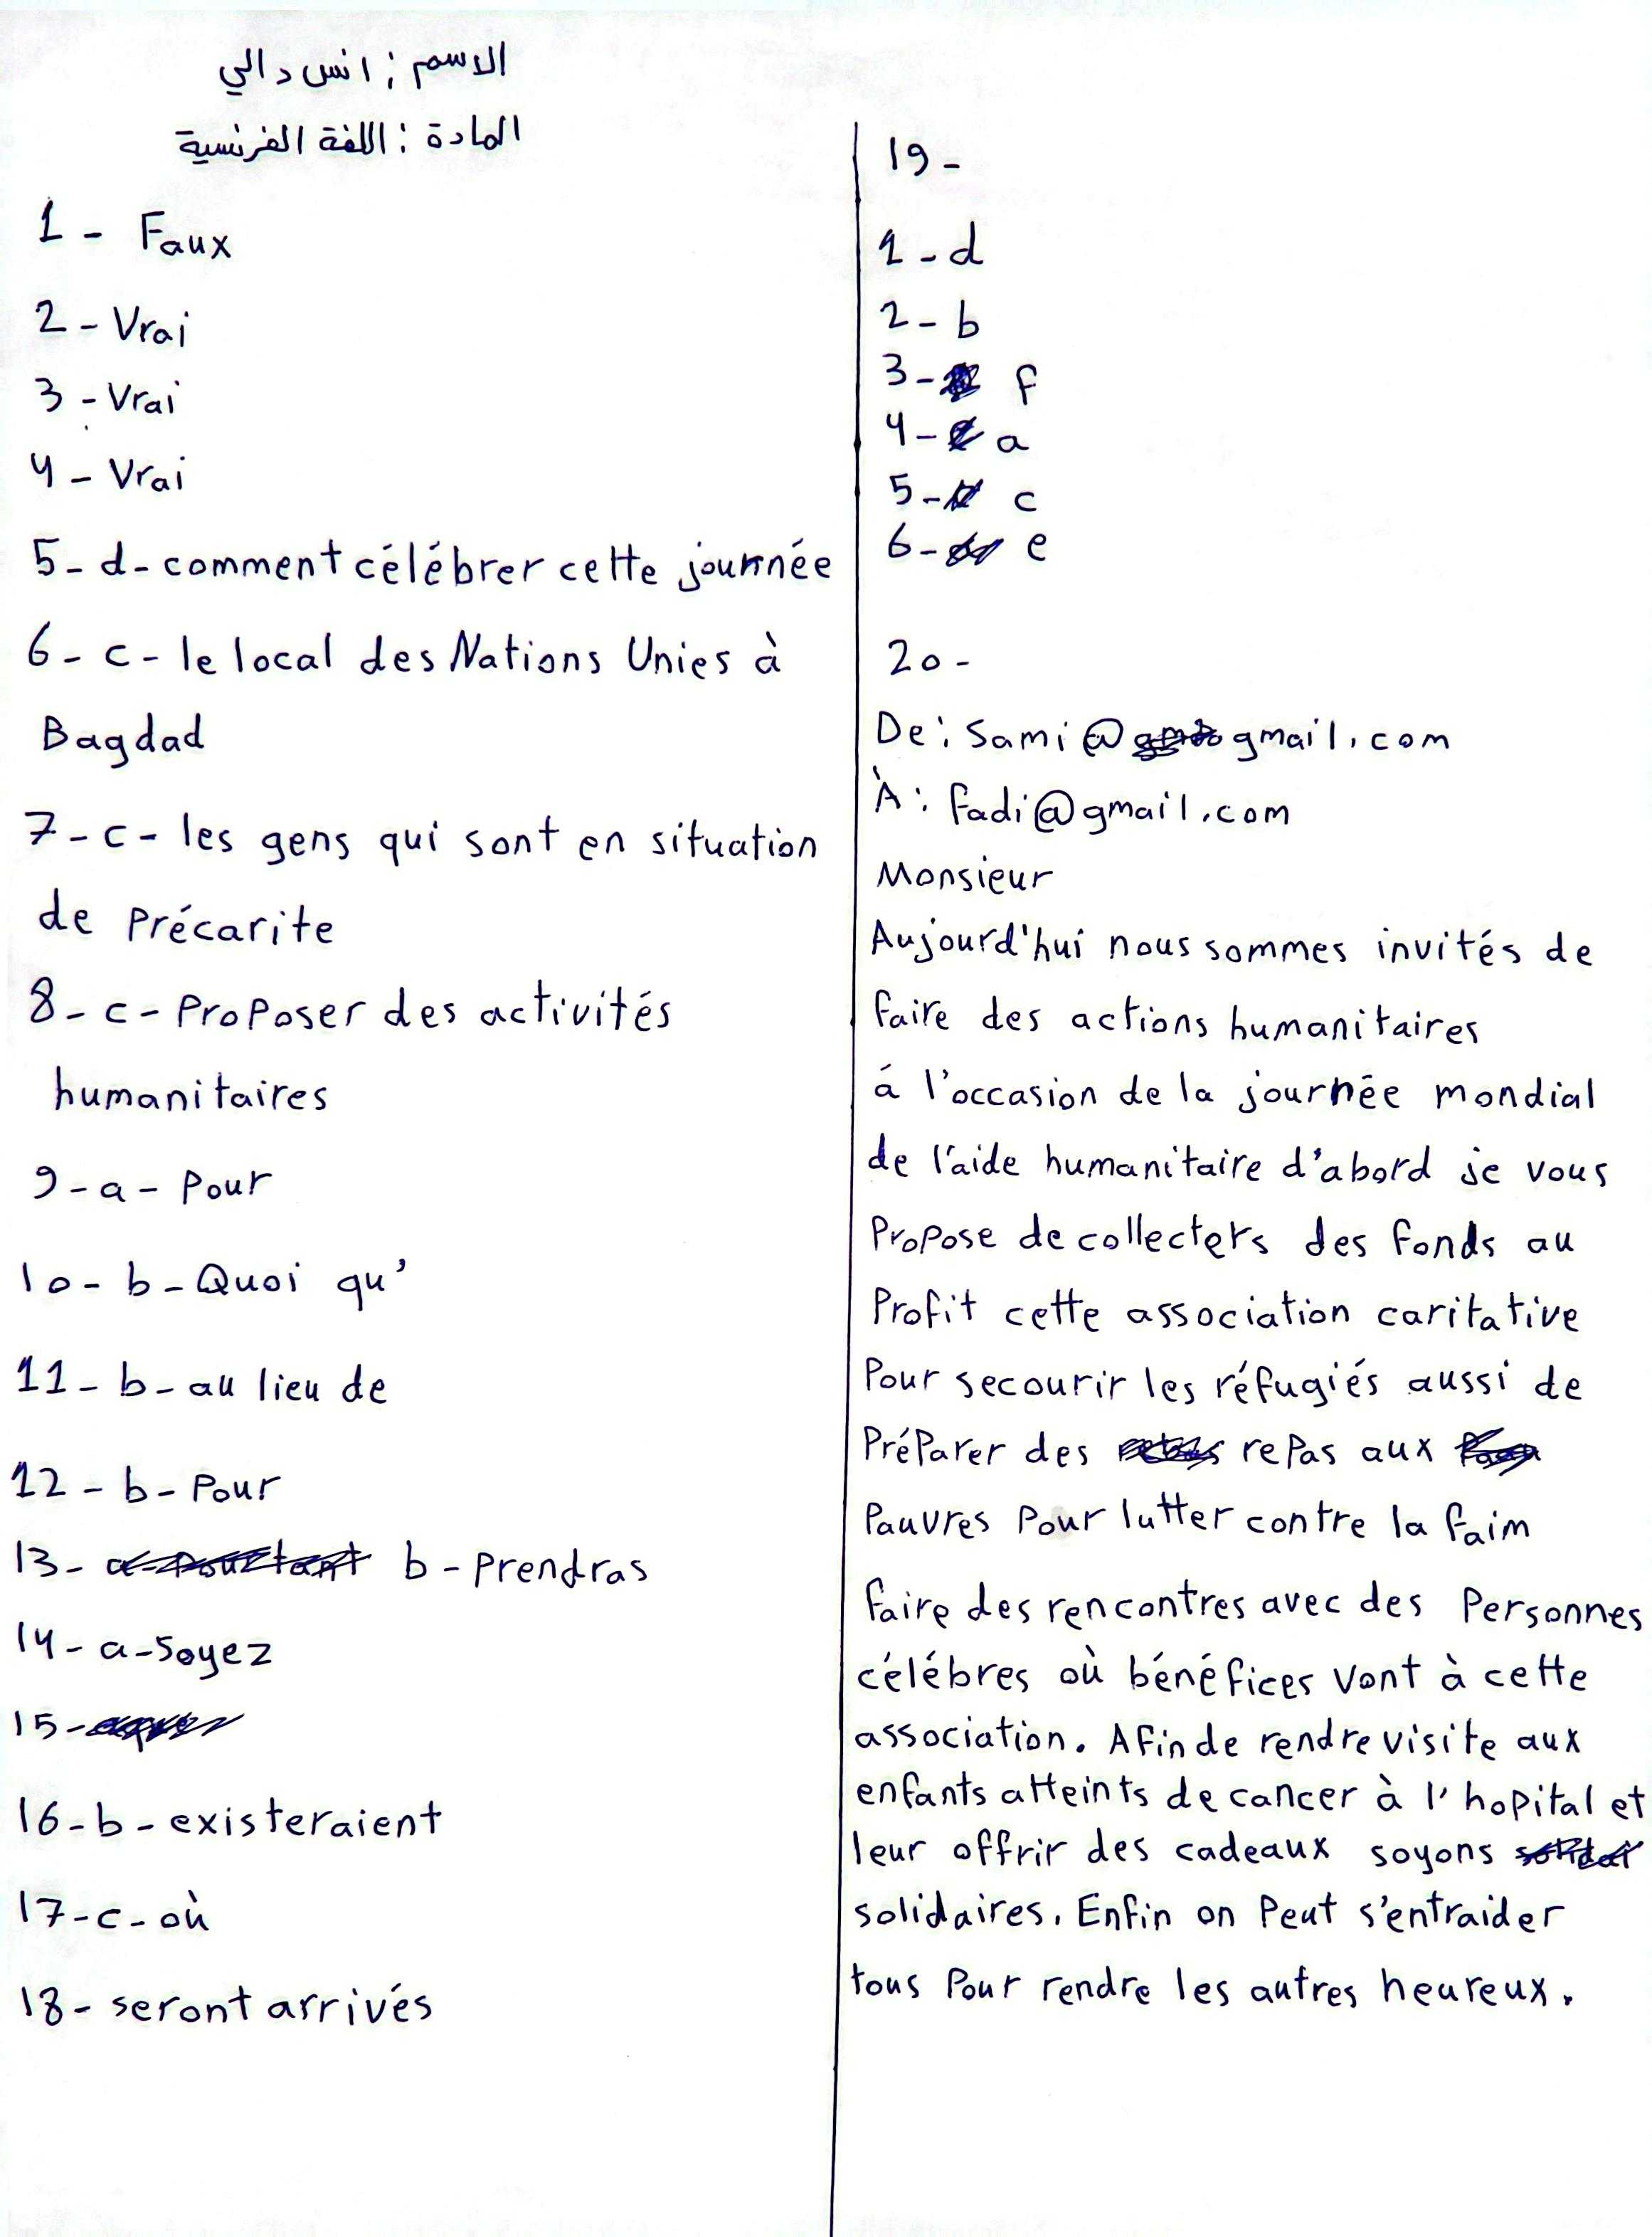 الاسم : انس دالي
المادة : اللغة الفرنسية
1 - Faux
2 - Vrai
3 - Vrai
4 - Vrai
5 - d - comment célébrer cette journée
6 - c - le local des Nations Unies à
Bagdad
7 - c - les gens qui sont en situation
de Précarite
8 - c - Proposer des activités
humanitaires
9 - a - Pour
10 - b - Quoi qu'
11 - b - au lieu de
12 - b - Pour
13 - b - Prendras
14 - a - Soyez
15 -
16 - b - existeraient
17 - c - où
18 - seront arrivés
19 -
1 - d
2 - b
3 - f
4 - a
5 - c
6 - e
20 -
De : Sami@gmail.com
À : fadi@gmail.com
Monsieur
Aujourd'hui nous sommes invités de
faire des actions humanitaires
á l'occasion de la journée mondial
de l'aide humanitaire d'abord je vous
Propose de collecters des fonds au
Profit cette association caritative
Pour secourir les réfugiés aussi de
Préparer des repas aux
Pauvres Pour lutter contre la faim
faire des rencontres avec des Personnes
célébres où bénéfices vont à cette
association. Afin de rendre visite aux
enfants atteints de cancer à l'hopital et
leur offrir des cadeaux soyons
solidaires. Enfin on Peut s'entraider
tous Pour rendre les autres heureux.